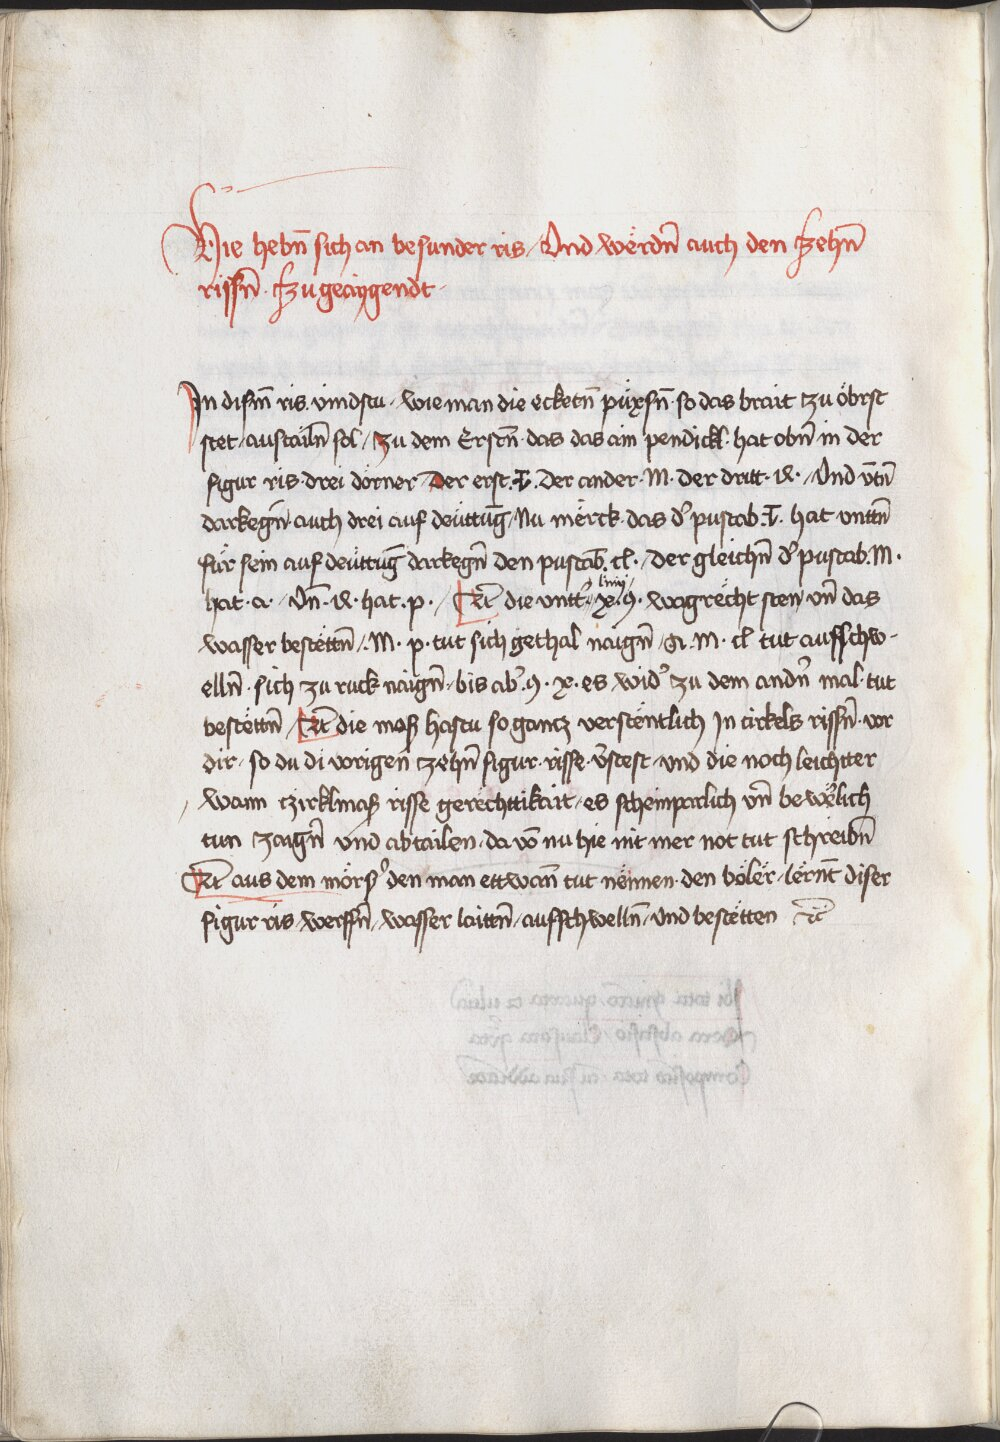 Hie hebñ sich an besunder ris / Und wërdñ auch den szehñ
rissñ · szu geaygendt ·
In dism̃ ris vindstu · wie man die ecketñ püxsñ · so das brait zu öbrst
stet / austailñ sol / zu dem Erstñ · das das ain pendickl · hat obñ in der
figur ris · drei dörner / Der erst · T · der ander · M · der dritt · ꝛ · / Und vn̄
darkegñ · auch drei auf deüttug̃ / Nu mërck · das d' pustab · T · hat vnttñ
für sein auf deüttug̃ darkegñ den pustab̃ · cl · / der gleichñ d' pustab · M ·
hat · a · / Vñ · hat · p · / Et die vntt' linij x · 9 · wagrëcht sten vñ das
wasser bestëttñ / M · p · tut sich gethal naigñ / M · cl tut auffschw-
ellñ · sich zu ruck naigñ · bis ab' 9 · x · es wid' zu dem andñ mal · tut
bestëttñ / Et die maß hastu so gancz verstëntlich In cirkels rissñ · vor
dir · so du di vorigen zehñ figur · risse · v̄stest · und die noch leichtter
wann czirklmaß risse gerëchttikait / es scheinparlich vñ bewërlich
tun zaigñ vnd abtailen · da võ nu hie nit mer not tut schreibñ
Et aus dem mörs' den man ettwañ tut nënnen · den bölër / lërnt diser
figur ris / werffñ / wasser laittñ / auffschwellñ · und bestëtten ·